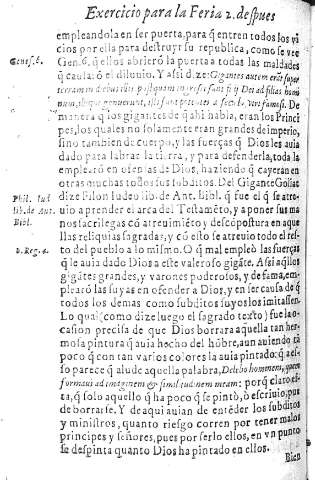 Exercicio para la Feria 2. despues
empleandola en ser puerta, para q̃ entren todos los vi
cios por ella para destruyr su republica, como se vee
Genes. 6.
Gen. 6. q̃ ellos abrierõ la puerta a todas las maldades
q̃ causarõ el diluuio. Y assi dize: Gigantes autem erãt super
terram in diebus illis postquam ingressi sunt filij Dei ad filias homi
num, illæque genuerunt, isti sunt potentes a seculo, viri famosi. De
manera q̃ los gigantes de q̃ ahi habla, eran los Princi
pes, los quales no solamente eran grandes de imperio,
sino tambien de cuerpo, y las fuerças q̃ Dios les auia
dado para labrar la tierra, y para defenderla, toda la
emplearõ en ofensas de Dios, haziendo q̃ cayeran en
otras muchas todos sus subditos. Del Gigante Golias
Phil. Iud
lib. de Ant.
Bibl.
dize Filon Iudeo lib. de Ant. Bibl. q̃ fue el q̃ se atre-
uio a prender el arca del Testamẽto, y a poner sus ma
nos sacrilegas cõ atreuimiẽto y descõpostura en aque
llas reliquias sagradas, y cõ ello se atreuio todo el res-
2. Reg. 4.
to del pueblo a lo mismo. O q̃ mal empleò las fuerças
q̃ le auia dado Dios a este valeroso gigãte. Assi aq̃llos
gigãtes grandes, y varones poderosos, y de fama, em-
plearõ las suyas en ofender a Dios, y en ser causa de q̃
todos los demas como subditos suyos los imitassen.
Lo qual (como dize luego el sagrado texto) fue la o-
casion precisa de que Dios borrara aquella tan her-
mosa pintura q̃ auia hecho del hõbre, aun auiendo tã
poco q̃ con tan varios colores la auia pintado: q̃ a es-
so parece q̃ alude aquella palabra, Delebo hominem, quem
formaui ad imaginem & similitudinem meam: porq̃ claro es-
ta, q̃ solo aquello q̃ ha poco q̃ se pintò, ò escriuio, pue
de borrarse. Y de aqui auian de entẽder los subditos
y ministros, quanto riesgo corren por tener malos
principes y señores, pues por serlo ellos, en vn punto
se despinta quanto Dios ha pintado en ellos.
Bien